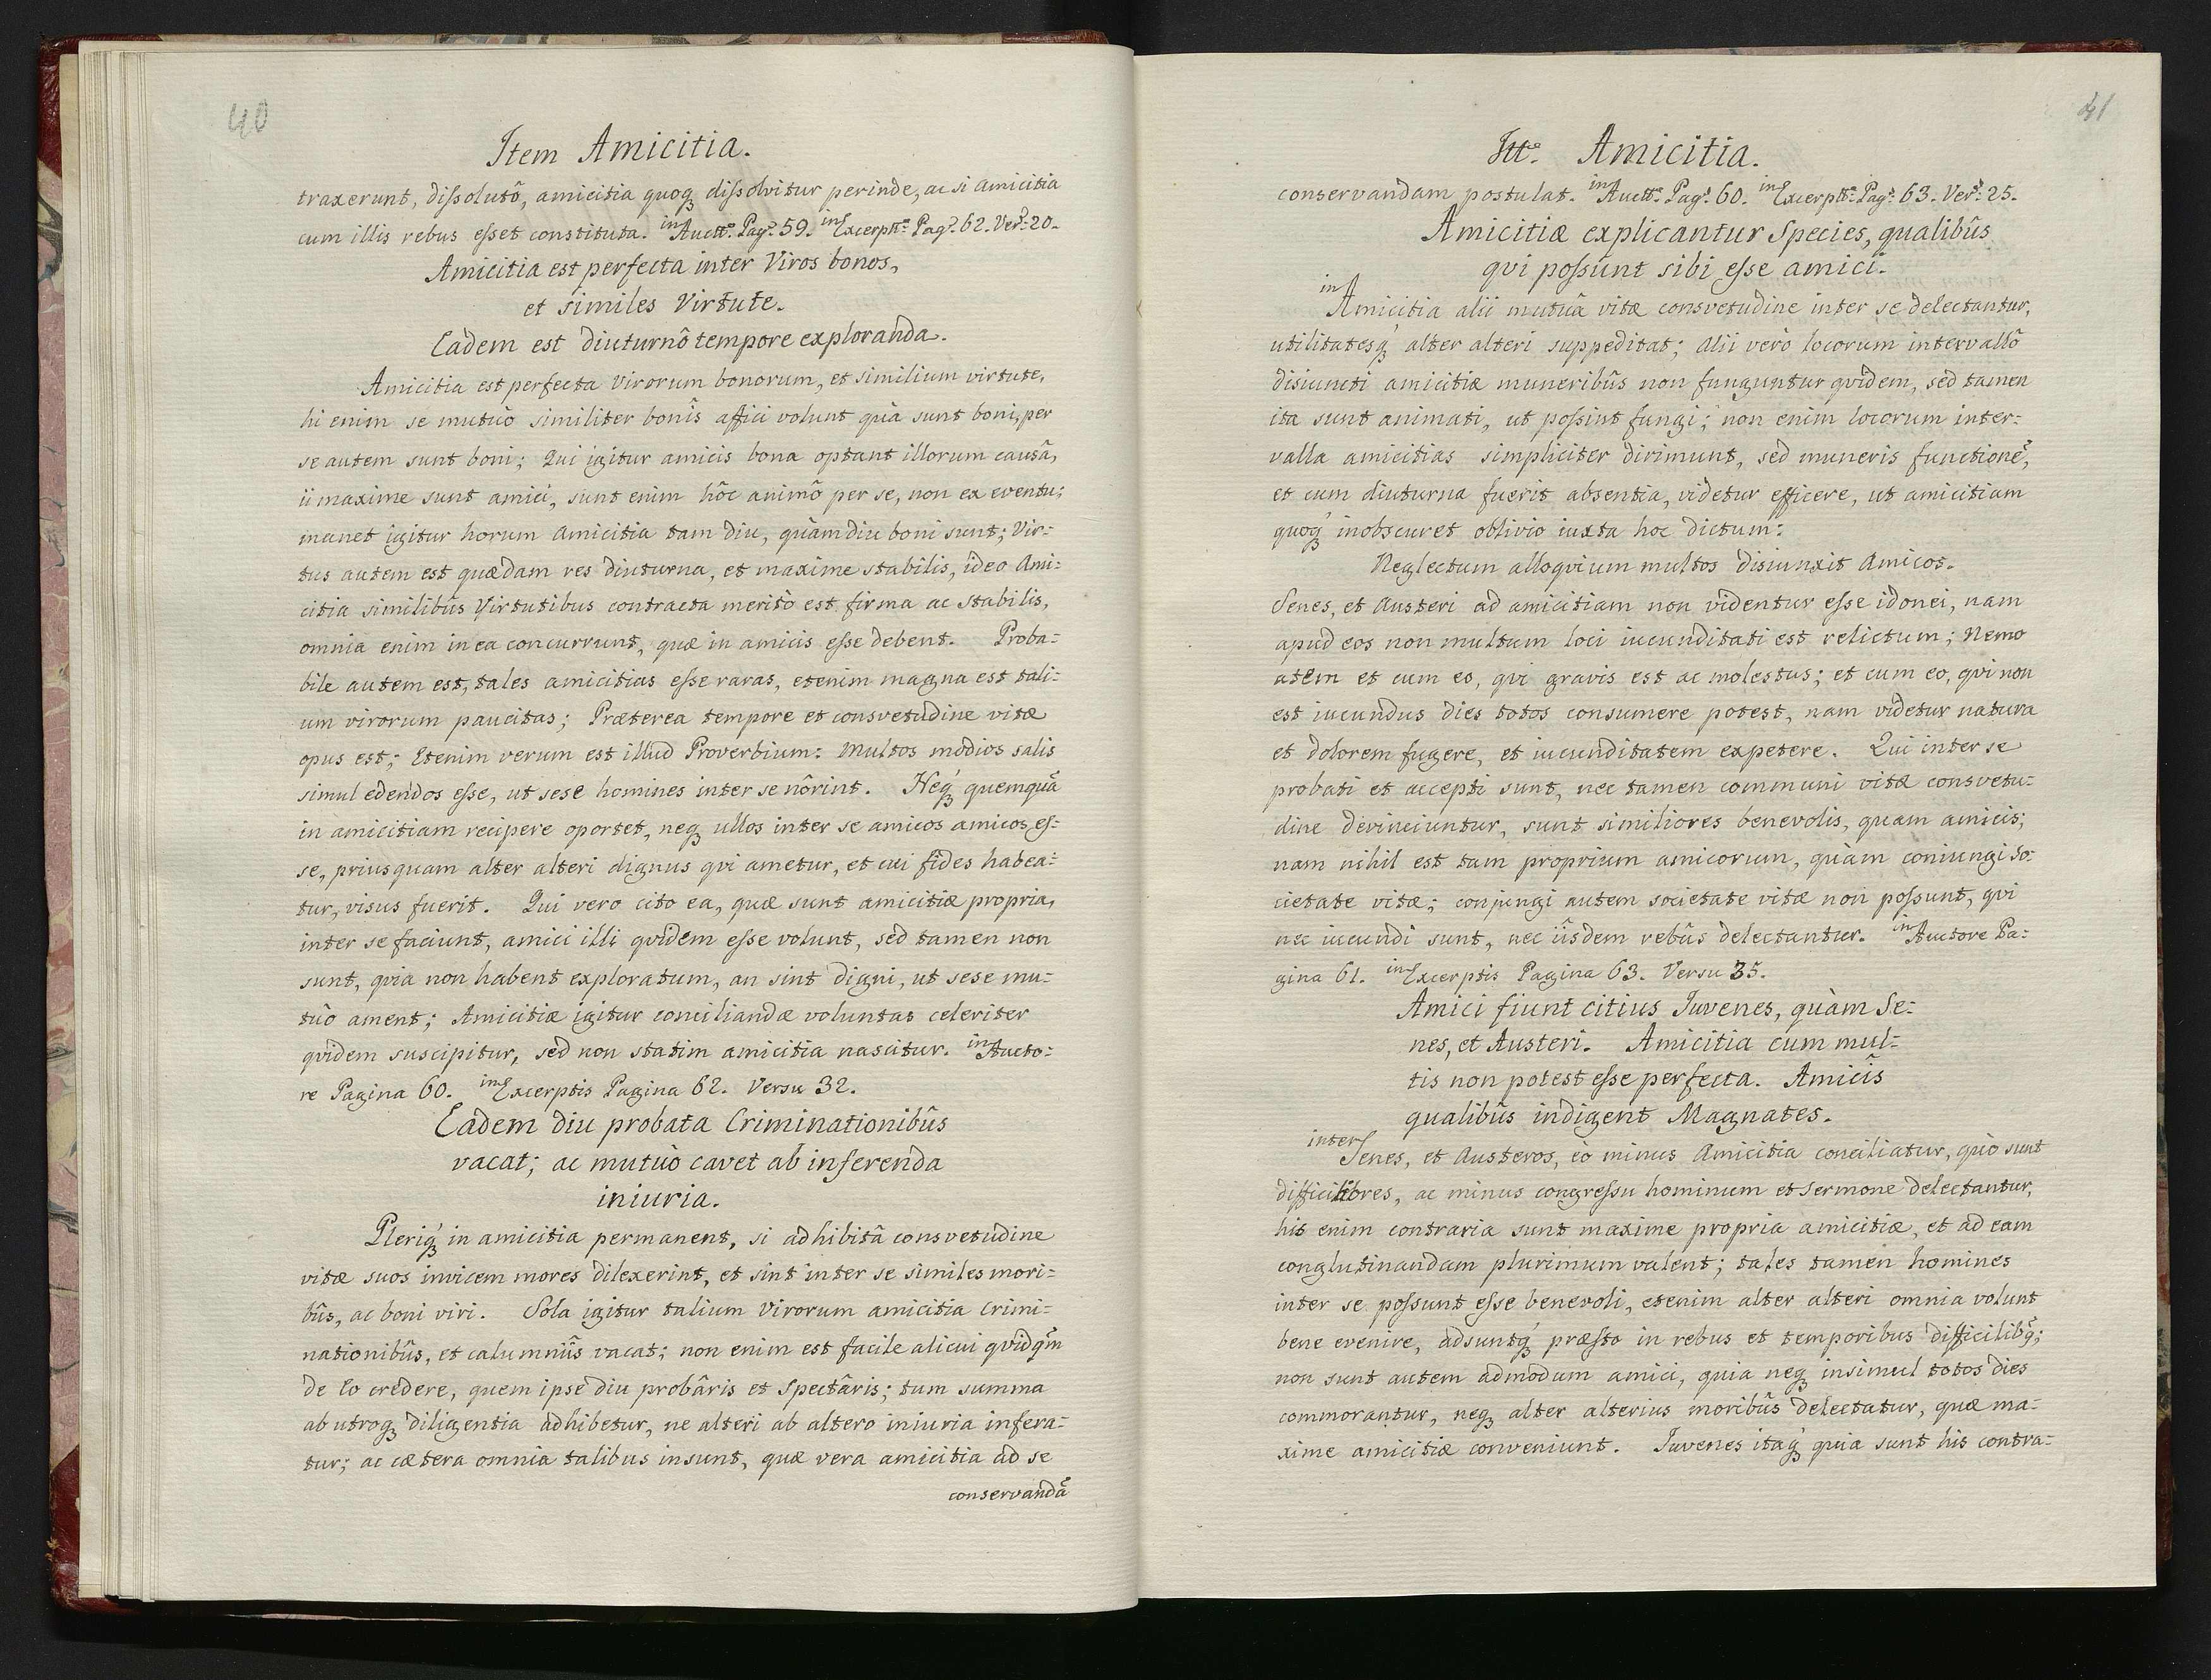 40
Item Amicitia.
traxerunt, dissolutô, amicitia quoq₃ dissolvitur perinde, ac si amicitia
cum illis rebus esset constituta. in Auctre. Pagâ. 59. in Excerptis. Pagâ. 62. Versû. 20.
Amicitia est perfecta inter Viros bonos,
et similes Virtute.
Eadem est diuturnô tempore exploranda.
Amicitia est perfecta virorum bonorum, et similium virtute,
hi enim se mutuò similiter bonîs affici volunt quà sunt boni, per
se autem sunt boni; Qui igitur amicis bona optant illorum causâ,
ii maxime sunt amici, sunt enim hôc animô per se, non ex eventu;
manet igitur horum amicitia tam diu, quàmdiu boni sunt; Vir-
tus autem est quædam res diuturna, et maxime stabilis, ideo Ami-
citia similibûs Virtutibus contracta meritò est firma ac stabilis,
omnia enim in ea concurrunt, quæ in amicis esse debent. Proba-
bile autem est, tales amicitias esse raras, etenim magna est tali-
um virorum paucitas; Præterea tempore et consvetudine vitæ
opus est; Etenim verum est illud Proverbium: Multos modios salis
simul edendos esse, ut sese homines inter se nôrint. Neq₃ quemquã
in amicitiam recipere oportet, neq₃ ullos inter se amicos amicos es-
se, priusquam alter alteri dignus qvi ametur, et cui fides habea-
tur, visus fuerit. Qui vero cito ea, quæ sunt amicitiæ propria,
inter se faciunt, amici illi qvidem esse volunt, sed tamen non
sunt, qvia non habent exploratum, an sint digni, ut sese mu-
tùo ament; Amicitiæ igitur conciliandæ voluntas celeriter
qvidem suscipitur, sed non statim amicitia nascitur. in Aucto-
re Pagina 60. in Excerptis Pagina 62. Versu 32.
Eadem diu probata Criminationibûs
vacat; ac mutuò cavet ab inferenda
iniuria.
Pleriq₃ in amicitia permanent, si adhibitâ consvetudine
vitæ suos invicem mores dilexerint, et sint inter se similes mori-
bûs, ac boni viri. Sola igitur talium Virorum amicitia Crimi-
nationibûs, et calumniîs vacat; non enim est facile alicui qvidqm̃
de Eo credere, quem ipse diu probâris et Spectâris; tum summa
ab utroq₃ diligentia adhibetur, ne alteri ab altero iniuria infera-
tur; ac cætera omnia talibus insunt, quæ vera amicitia ad se
conservandã
41
Itê. Amicitia.
conservandam postulat. in Auctre. Pagâ. 60. in Excerptis. Pagâ. 63. Versû. 25.
Amicitiæ explicantur Species, qualibûs
qvi possunt sibi esse amici.
in Amicitia alii mutuâ vitæ consvetudine inter se delectantur,
utilitatesq₃ alter alteri suppeditat; Alii verò locorum intervallô
disiuncti amicitiæ muneribûs non funguntur qvidem, sed tamen
ita sunt animati, ut possint fungi; non enim locorum inter-
valla amicitias simpliciter dirimunt, sed muneris functionẽ,
et cum diuturna fuerit absentia, videtur efficere, ut amicitiam
quoq₃ inobscuret oblivio iuxta hoc dictum:
Neglectum alloqvium multos disiunxit Amicos.
Senes, et Austeri ad amicitiam non videntur esse idonei, nam
apud eos non multum loci iucunditati est relictum; Nemo
atem et cum eo, qvi gravis est ac molestus; et cum eo, qvi non
est iucundus dies totos consumere potest, nam videtur natura
et dolorem fugere, et iucunditatem expetere. Qui inter se
probati et accepti sunt, nec tamen communi vitæ consvetu-
dine devinciuntur, sunt similiores benevolis, quam amicis;
nam nihil est tam proprium amicorum, quàm coniungi so-
cietate vitæ; conjungi autem societate vitæ non possunt, qvi
nec iucundi sunt, nec iisdem rebûs delectantur. in Auctore Pa-
gina 61. in Excerptis Pagina 63. Versu 35.
Amici fiunt citius Iuvenes, quàm Se-
nes, et Austeri. Amicitia cum mul-
tis non potest esse perfecta. Amicîs
qualibûs indigent Magnates.
inter Senes, et Austeros, eò minus Amicitia conciliatur, quò sunt
difficiliores, ac minus congressu hominum et sermone delectantur,
his enim contraria sunt maxime propria amicitiæ, et ad eam
conglutinandam plurimum valent; tales tamen homines
inter se possunt esse benevoli, etenim alter alteri omnia volunt
bene evenire, adsuntq₃ præsto in rebus et temporibus difficilibq₃;
non sunt autem admodum amici, quia neq₃ insimul totos dies
commorantur, neq₃ alter alterius moribûs delectatur, quæ ma-
xime amicitiæ conveniunt. Iuvenes itaq₃ quia sunt his contra-